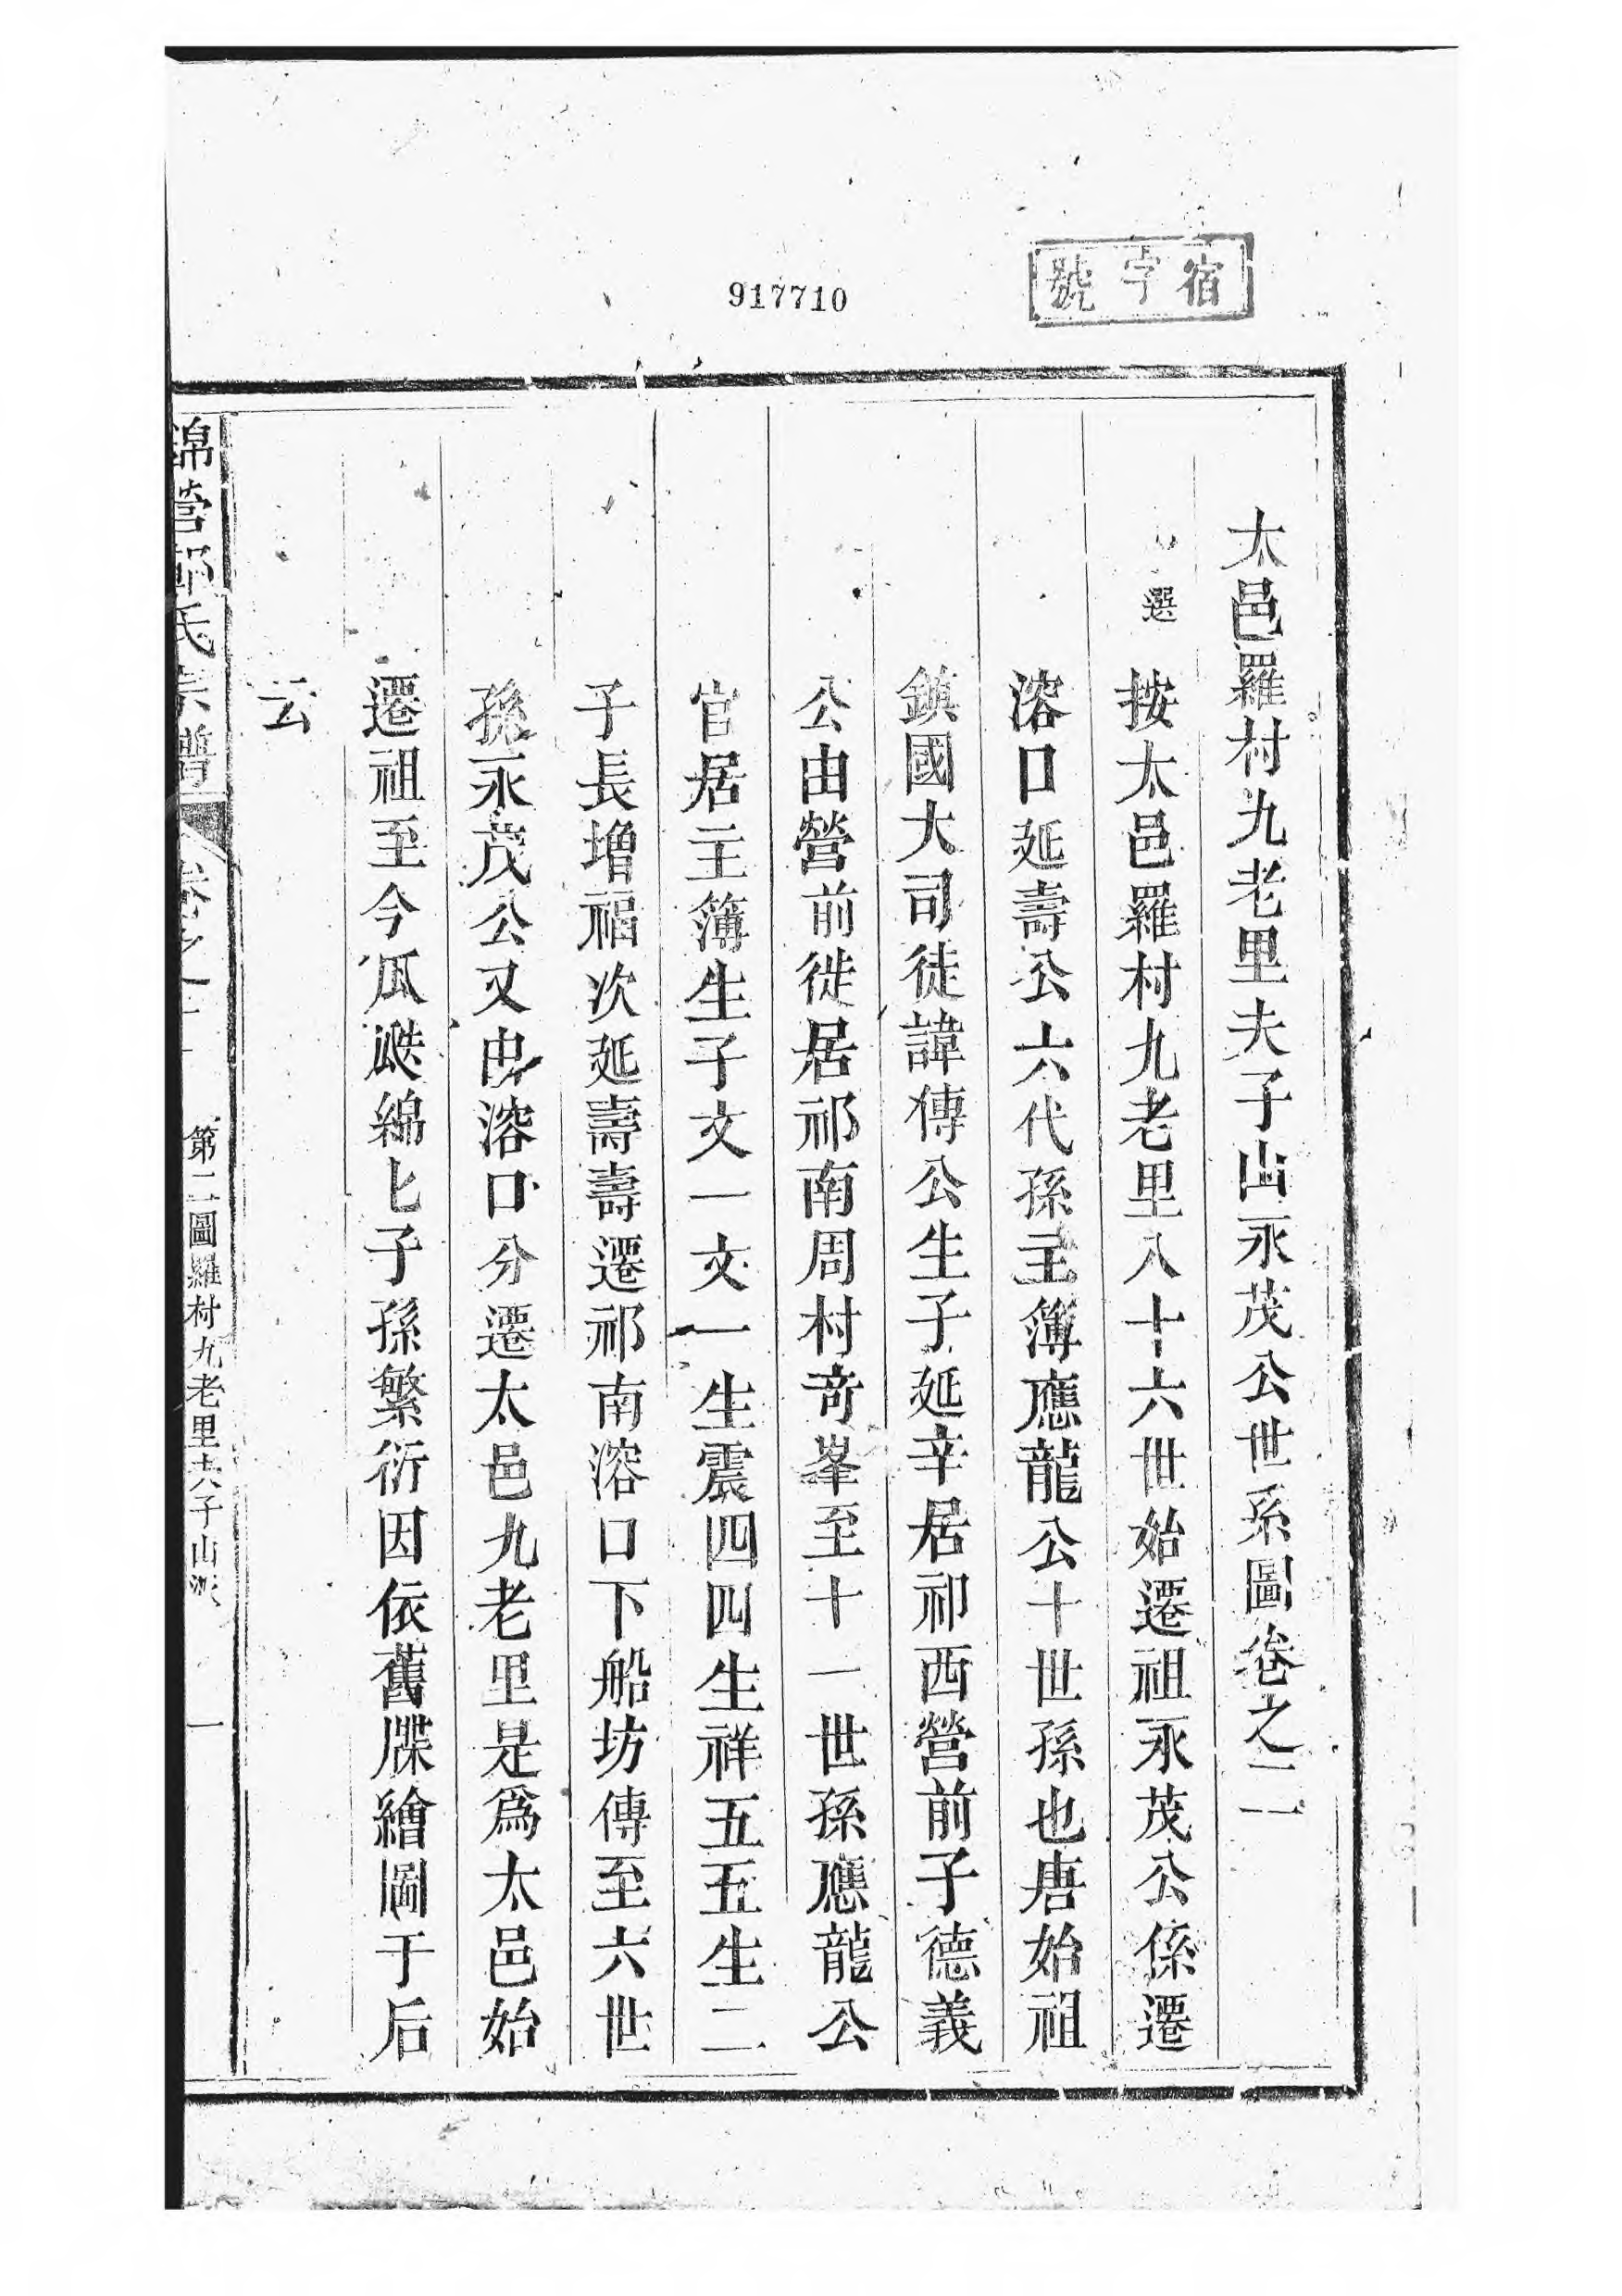 宿字號
917710
太邑羅村九老里夫子山永茂公世系圖卷之二
選
按太邑羅村九老里八十六世始遷祖永茂公係遷
溶口延壽公六代孫主簿應龍公十世孫也唐始祖
鎮國大司徒諱傳公生子延辛居祁西營前子德義
公由營前徙居祁南周村奇峯至十一世孫應龍公
官居主簿生子文一文一生震四四生祥五五生二
子長增福次延壽壽遷祁南溶口下船坊傳至六世
孫永茂公又由溶口分遷太邑九老里是爲太邑始
遷祖至今瓜瓞綿匕子孫繁衍因依舊牒繪圖于后
云
錦營邵氏宗譜
卷之二
第二圖羅村九老里夫子山派
一